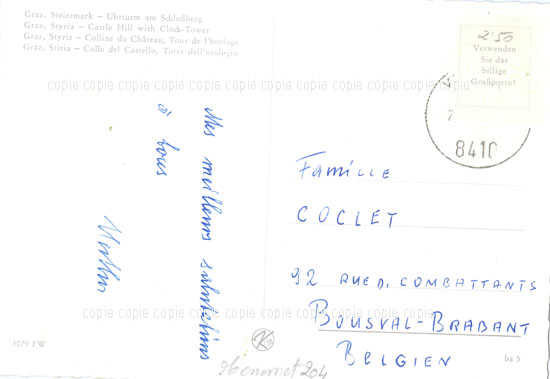 Graz, Steiermark – Uhrturm am Schloßberg
Graz, Styria – Castle Hill with Clock-Tower
Graz, Styrie – Colline du Château, Tour de l'horloge
Graz, Stiria – Colle del Castello, Torre dell'orologio
2'50
Verwenden
Sie das
billige
Grußporto!
copie copie copie copie copie copie copie copie copie copie copie copie
7
8410
Mes meilleures salutations
à tous
Famille
COCLET
92 RUE D. COMBATTANTS
BOUSVAL-BRABANT
BELGIEN
copie copie copie copie copie copie copie copie copie copie copie copie
3079 FW
K
204
ba 5